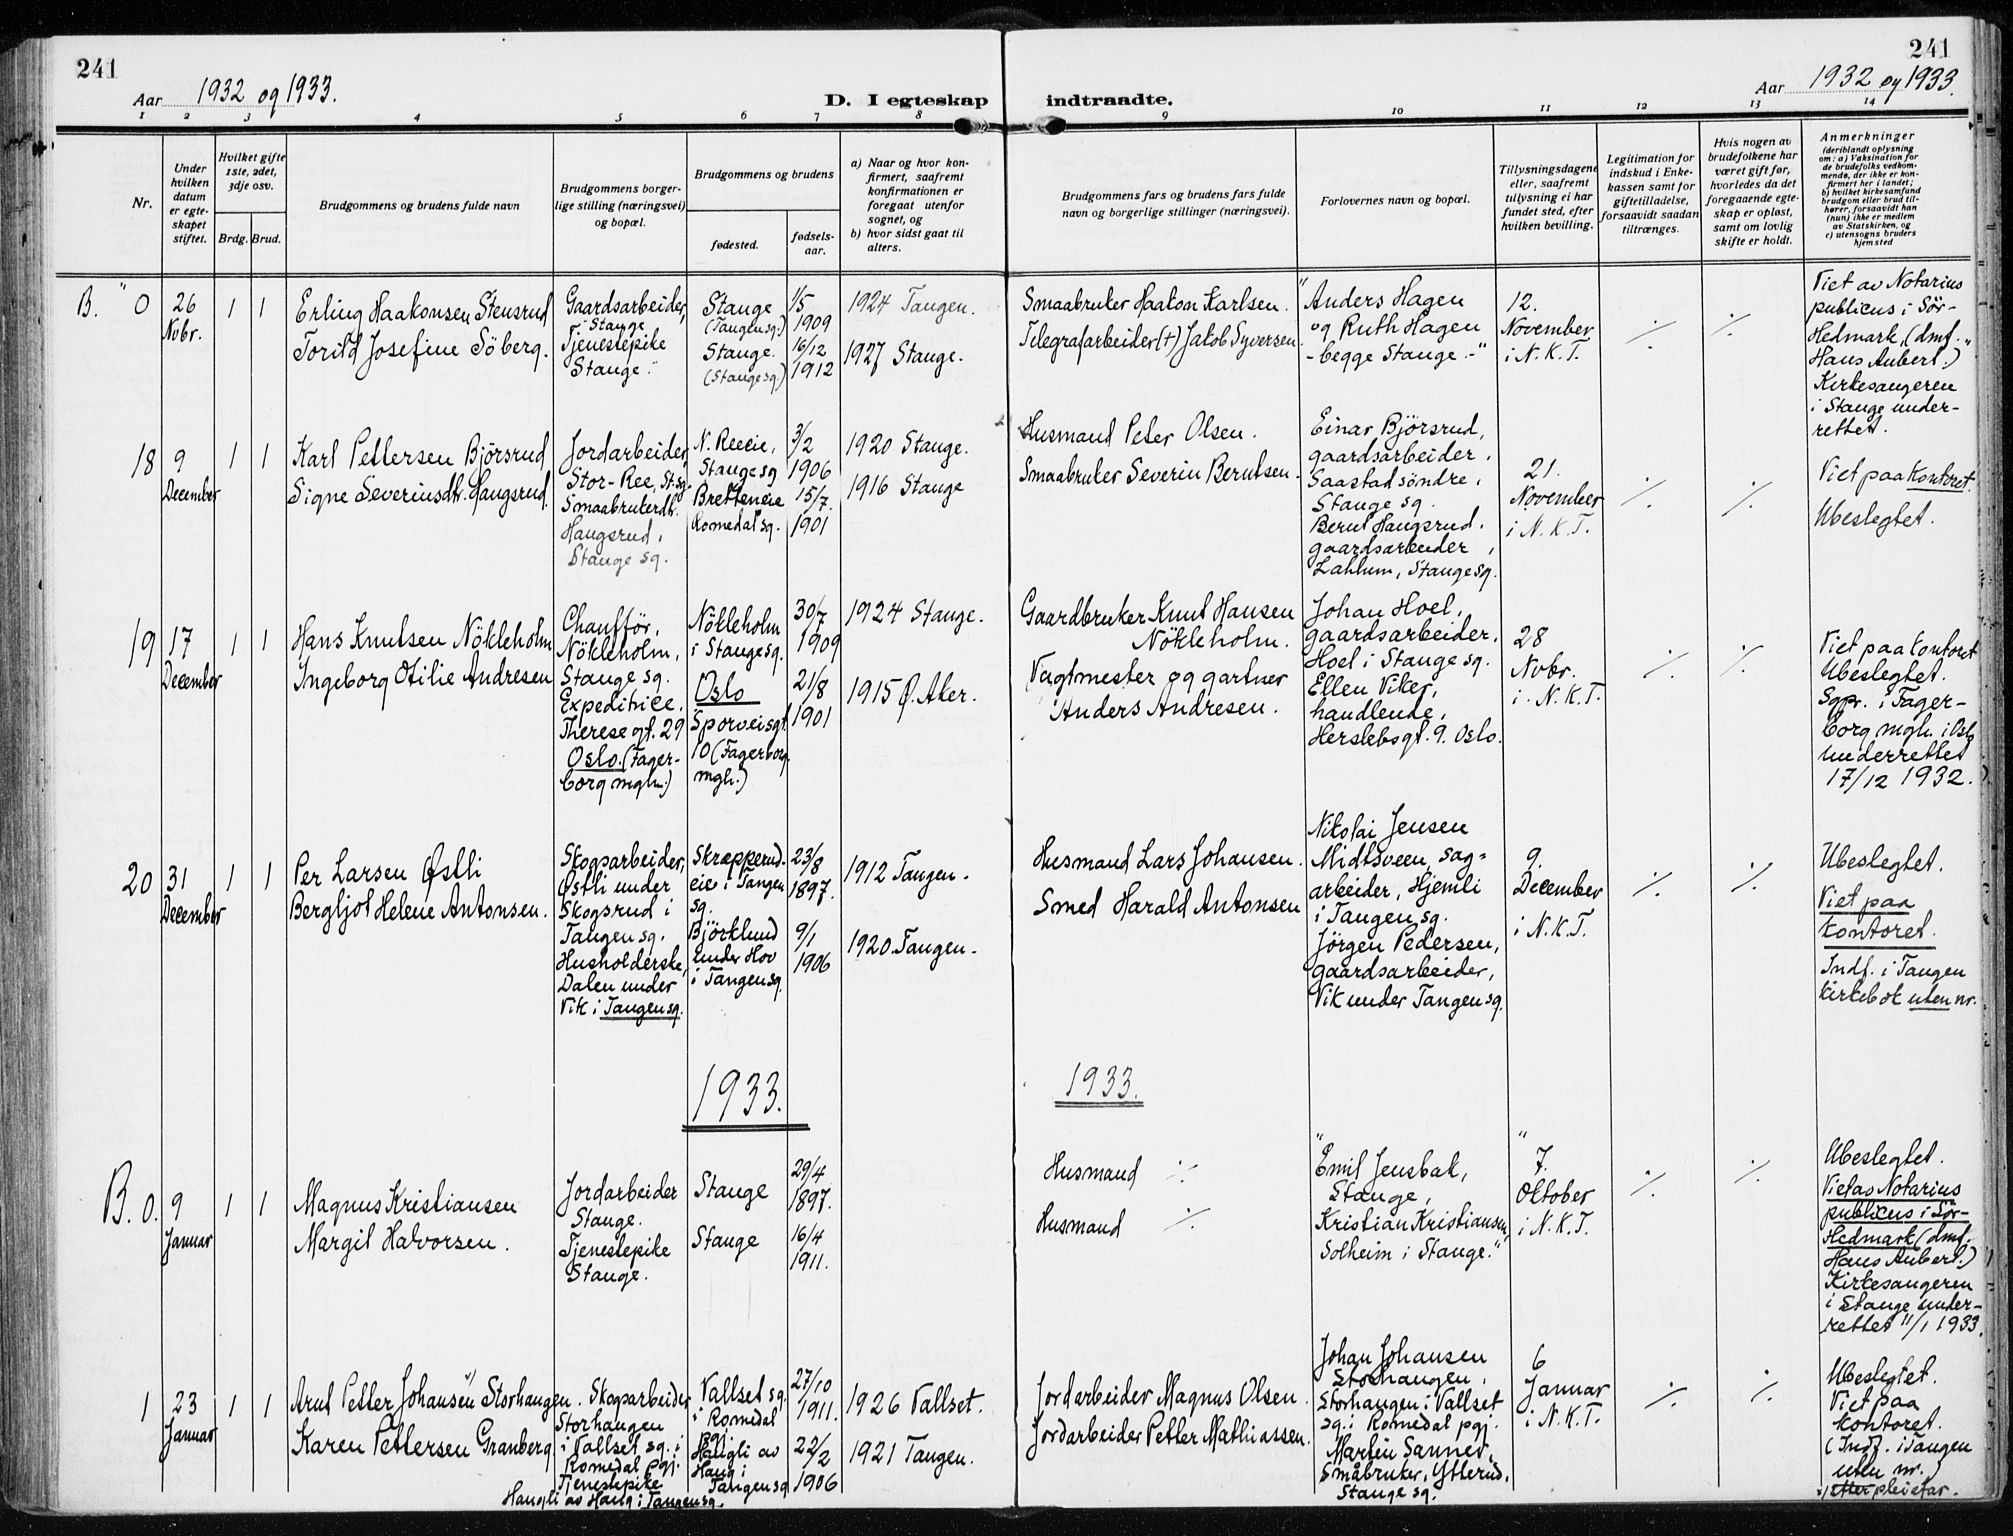 241
241
Aar 1932 og 1933.
D. I egteskap indtraadte.
Aar 1932 og 1933.
1 2 3 4 5 6 7 8 9 10 11 12 13 14
Nr.
Under hvilken datum er egteskapet stiftet.
Hvilket gifte 1ste, 2det, 3dje osv.
Brdg. Brud.
Brudgommens og brudens fulde navn
Brudgommens borgerlige stilling (næringsvei) og bopæl.
Brudgommens og brudens
fødested.
fødselsaar.
a) Naar og hvor konfirmert, saafremt konfirmationen er foregaat utenfor sognet, og
b) hvor sidst gaat til alters.
Brudgommens fars og brudens fars fulde navn og borgerlige stillinger (næringsvei).
Forlovernes navn og bopæl.
Tillysningsdagene eller, saafremt tillysning ei har fundet sted, efter hvilken bevilling.
Legitimation for indskud i Enkekassen samt for giftetilladelse, forsaavidt saadan tiltrænges.
Hvis nogen av brudefolkene har været gift før, hvorledes da det foregaaende egteskap er opløst, samt om lovlig skifte er holdt.
Anmerkninger
(deriblandt oplysning om: a) Vaksination for de brudefolks vedkommende, der ikke er konfirmert her i landet; b) hvilket kirkesamfund brudgom eller brud tilhører, forsaavidt han (hun) ikke er medlem av Statskirken, og c) utensogns bruders hjemsted
B. " 0
26
Novbr.
1 1
Erling Haakonsen Stensrud
Torild Josefine Söberg.
Gaardsarbeider,
Stange
Tjenestepike
Stange.
Stange
(Tangen sg.)
Stange.
(Stange sg.)
1/5
1909
16/12
1912
1924 Tangen.
1927 Stange.
Smaabruker Haakon Karlsen.
Telegrafarbeider (+) Jakob Syversen.
" Anders Hagen
og Ruth Hagen
- begge Stange.-"
12.
November
i N. K. T.
./.
./.
Viet av Notarius
publicus i Sör-
Hedmark, (dmf.
Hans Aubert.)
Kirkesangeren
i Stange under-
rettet.
18
9
December
1 1
Karl Pettersen Björsrud
Signe Severinsdtr. Haugsrud.
Jordarbeider,
Stor-Ree, St.sg.
Smaabrukerdtr.
Haugsrud,
Stange sg.
N. Reeeie,
Stange sg
Bretteneie
Romedal sg.
3/2
1906
15/7
1901
1920 Stange.
1916 Stange
Husmand Peter Olsen.
Smaabruker Severin Berntsen.
Einar Björsrud,
gaardsarbeider,
Saastad söndre,
Stange sg.
Bernt Haugsrud,
gaardsarbeider,
Lahlum, Stange sg.
21.
November
i N. K. T.
./.
./.
Viet paa kontoret.
Ubeslegtet.
19
17
December
1 1
Hans Knutsen Nökleholm
Ingeborg Otilie Andresen
Chauffør,
Nökleholm,
Stange sg.
Expeditrice,
Therese gt. 29
Oslo. (Fager-
borg mgh.)
Nökleholm
i Stange sg.
Oslo
Sporveisgt.
10 (Fagerborg
mgh.)
30/7
1909
21/8
1901
1924 Stange.
1915 Ø. Aker.
Gaardbruker Knut Hansen
Nökleholm.
Vagtmester og gartner
Anders Andresen.
Johan Hoel,
gaardsarbeider,
Hoel i Stange sg.
Ellen Viker,
handlende,
Herslebsgt. 9. Oslo.
28
Novbr.
i. N. K. T.
./.
./.
Viet paa kontoret
Ubeslegtet.
Sgpr. i Fager-
borg mgh. i Oslo
underrettet
17/12 1932.
20
31
December
1 1
Per Larsen Østli
Bergljot Helene Antonsen.
Skogsarbeider,
Østli under
Skogsrud i
Tangen sg.
Husholderske,
Dalen under
Vik i Tangen sg.
Skræpperud-
eie i Tangen
sg.
Björklund
under Hov
i Tangen sg.
23/8
1897.
9/1
1906
1912 Tangen.
1920 Tangen.
Husmand Lars Johansen.
Smed Harald Antonsen
Nikolai Jensen
Midtsveen, sag-
arbeider, Hjemli
i Tangen sg.
Jörgen Pedersen,
gaardsarbeider,
Vik under Tangen sg.
9.
December
i N. K. T.
./.
./.
Ubeslegtet.
Viet paa
kontoret.
Indf. i Tangen
kirkebok uten nr.
1933.
1933.
B. 0.
9
Januar
1 1
Magnus Kristiansen
Margit Halvorsen.
Jordarbeider
Stange.
Tjenestepike
Stange.
Stange
Stange
29/4
1897.
16/4
1911.
Husmand ./.
Husmand ./.
" Emil Jensbak,
Stange,
Kristian Kristiansen,
Solheim i Stange."
" 7.
Oktober
i N. K. T.
./.
./.
Ubeslegtet.
Viet av Notarius
publicus i Sör-
Hedmark (dmf.
Hans Aubert.)
Kirkesangeren
i Stange under-
rettet 11/1 1933.
1
23
Januar
1 1
Arnt Petter Johansen Storhaugen.
Karen Pettersen Granberg
Skogsarbeider
Storhaugen
i Vallset sg. i
Romedal pgj.
Tjenestepike
Haugli av Haug i Tangen sg.
Vallset sg.
i Romedal
pgj.
Haugli av
Haug i
Tangen sg
27/10
1911.
22/2
1906
1926 Vallset.
1921 Tangen.
Jordarbeider Magnus Olsen.
Jordarbeider Petter Mathiassen.
Johan Johansen
Storhaugen,
Storhaugen i Vallset
sg. i Romedal pgj.
Martin Sannev,
Småbruker, Ytterud,
Stange sg.
6
Januar
i N. K. T.
./.
./.
Ubeslegtet.
Viet paa
kontoret.
(Indf. i Tangen
uten nr.)
efter pleiefar.